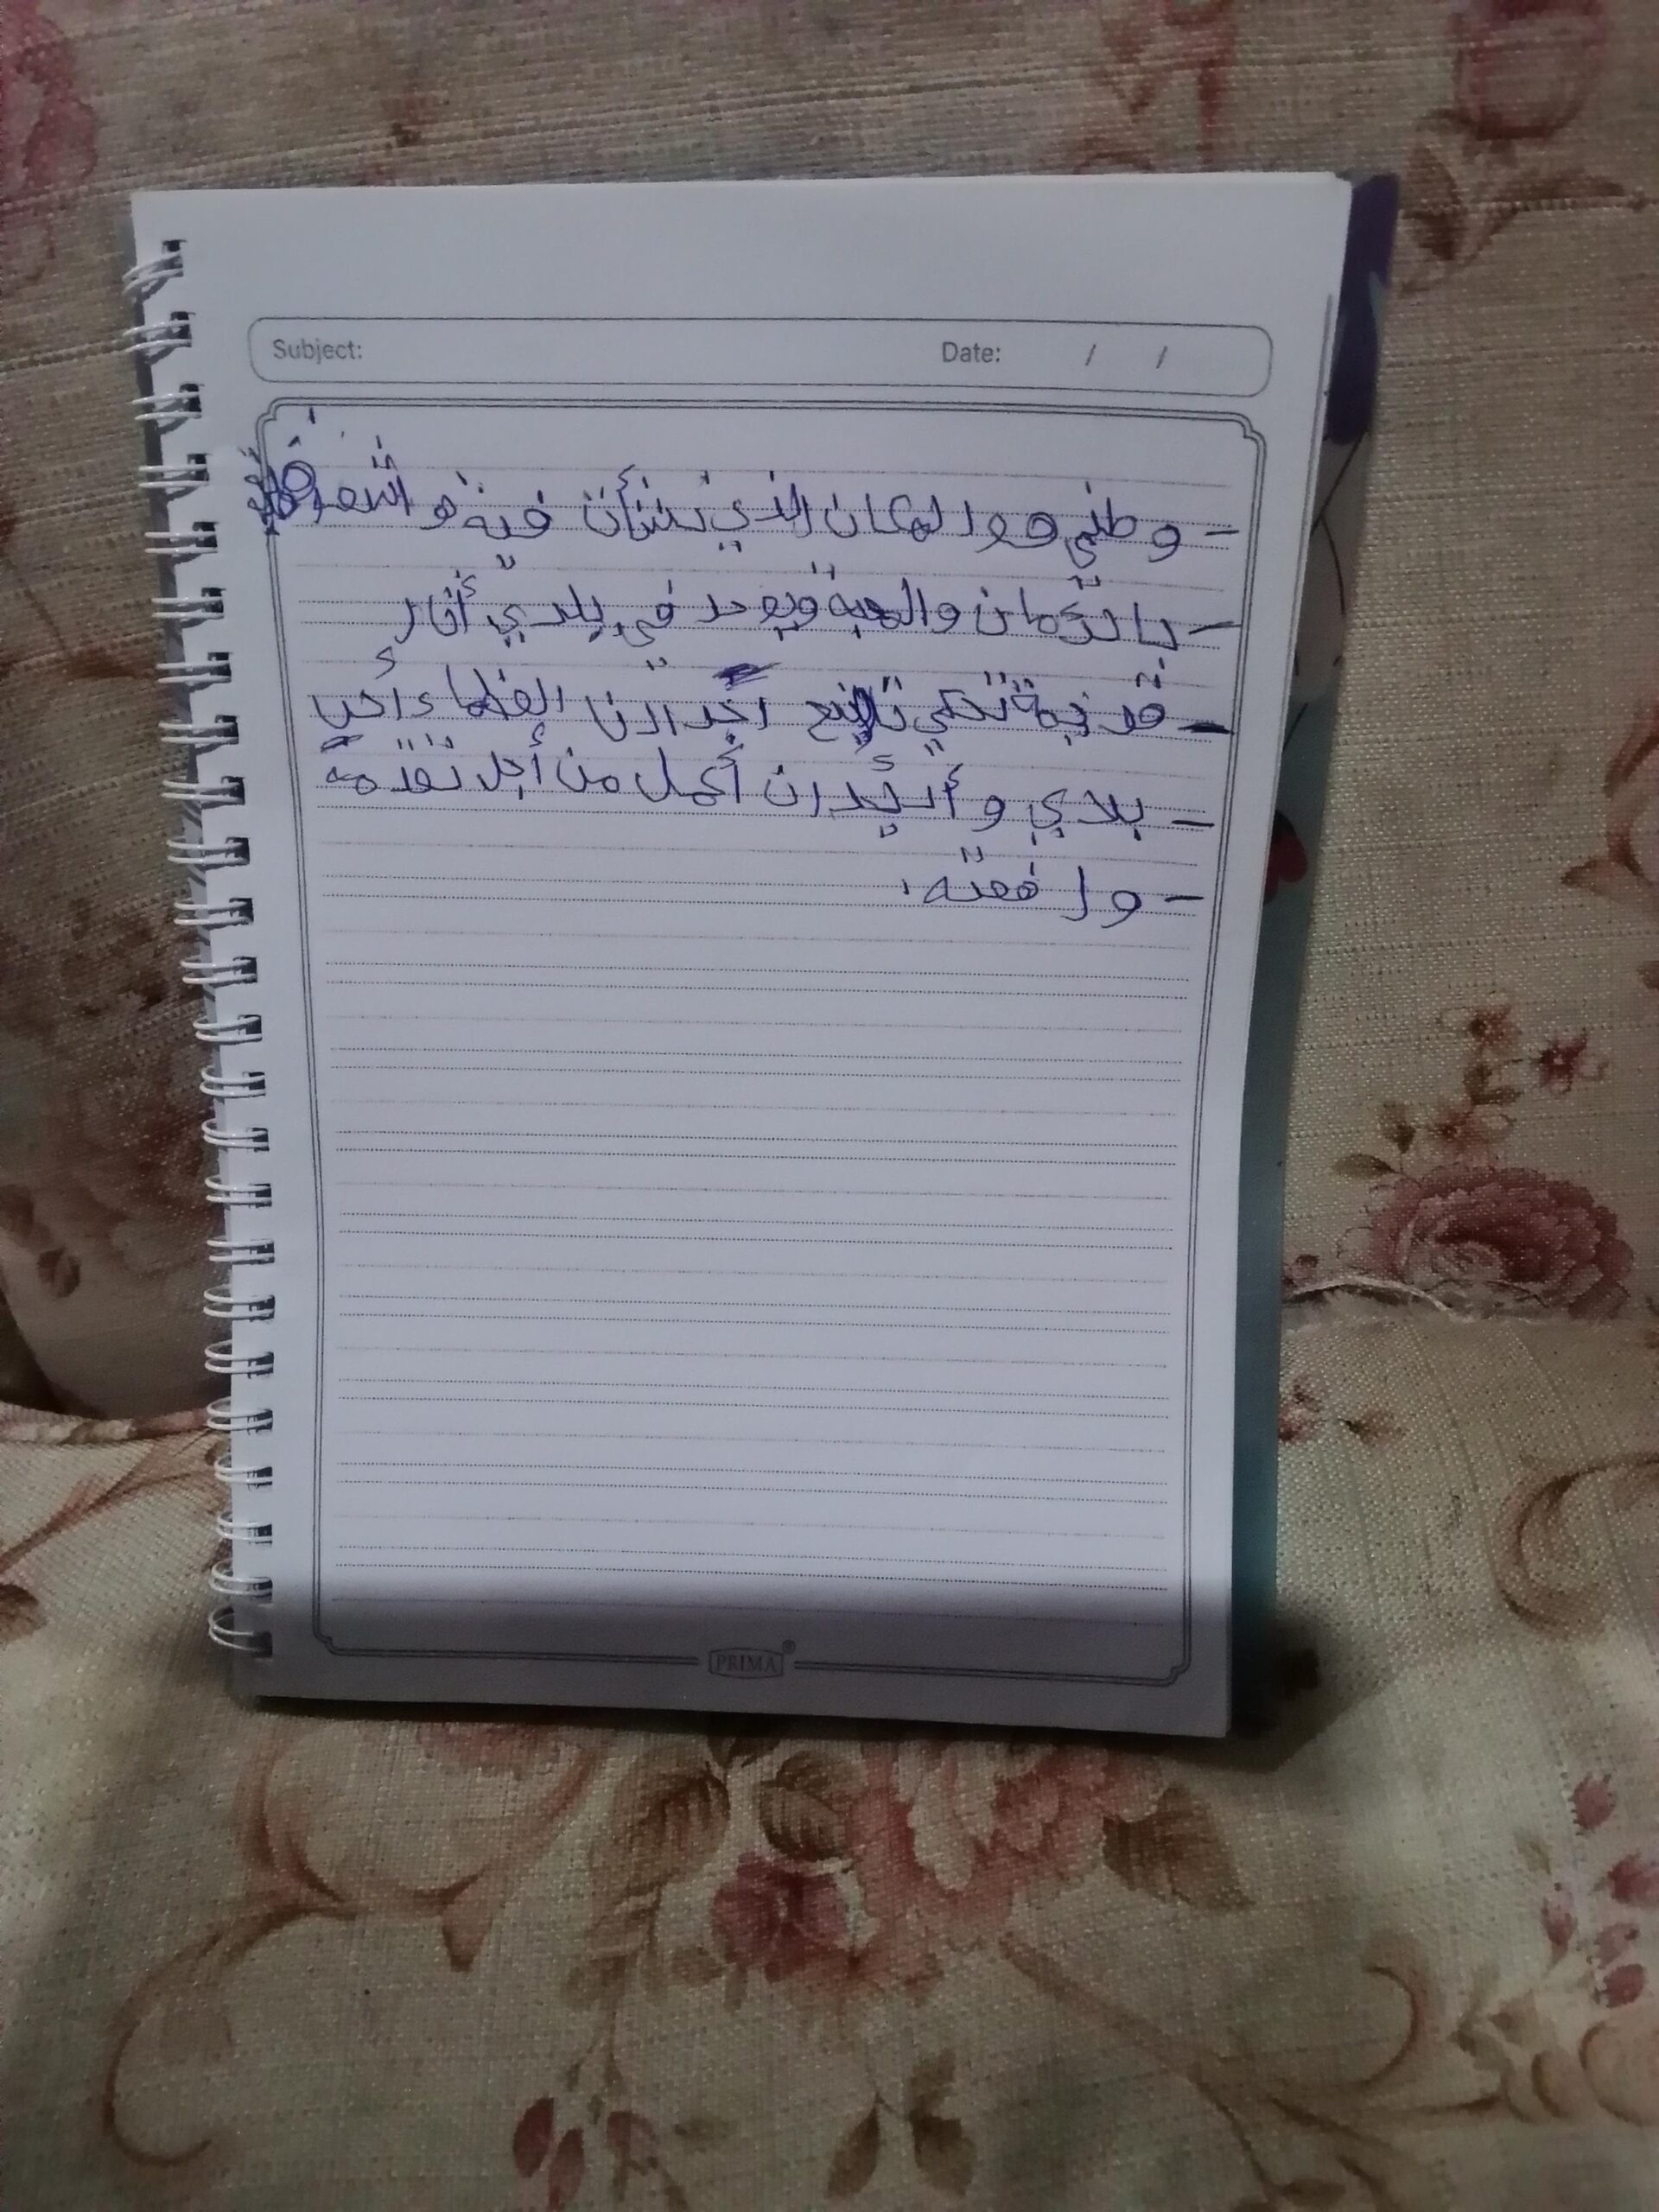 Subject: Date: / /
- وطني هو المكان الذي نشأت فيه و اشعر فيه
- بالأمان والمحبة ويوجد في بلدي أثار
- قديمة تحكي تاريخ أجدادنا العظماء أحب
- بلدي وأريد ان أعمل من أجل تقدمه
- ورفعته.
PRIMA